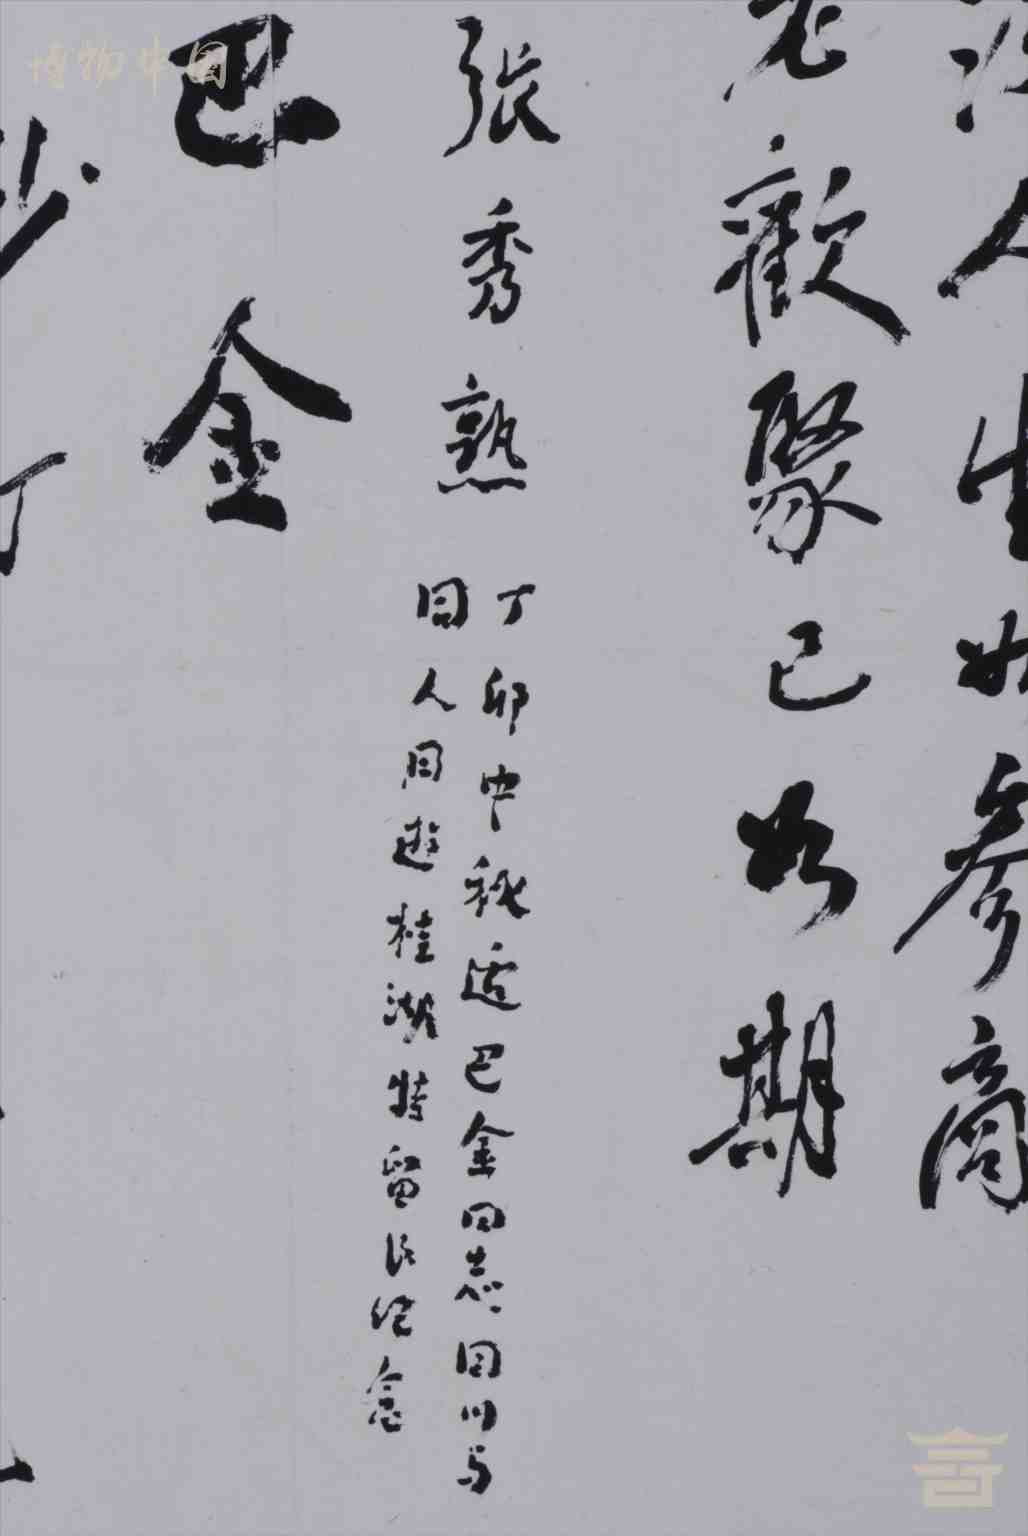 人生如参商
老歡聚已如期
張秀熟
丁卯中秋適巴金同志回川与
同人同遊桂湖特留以纪念
巴金
博物中国